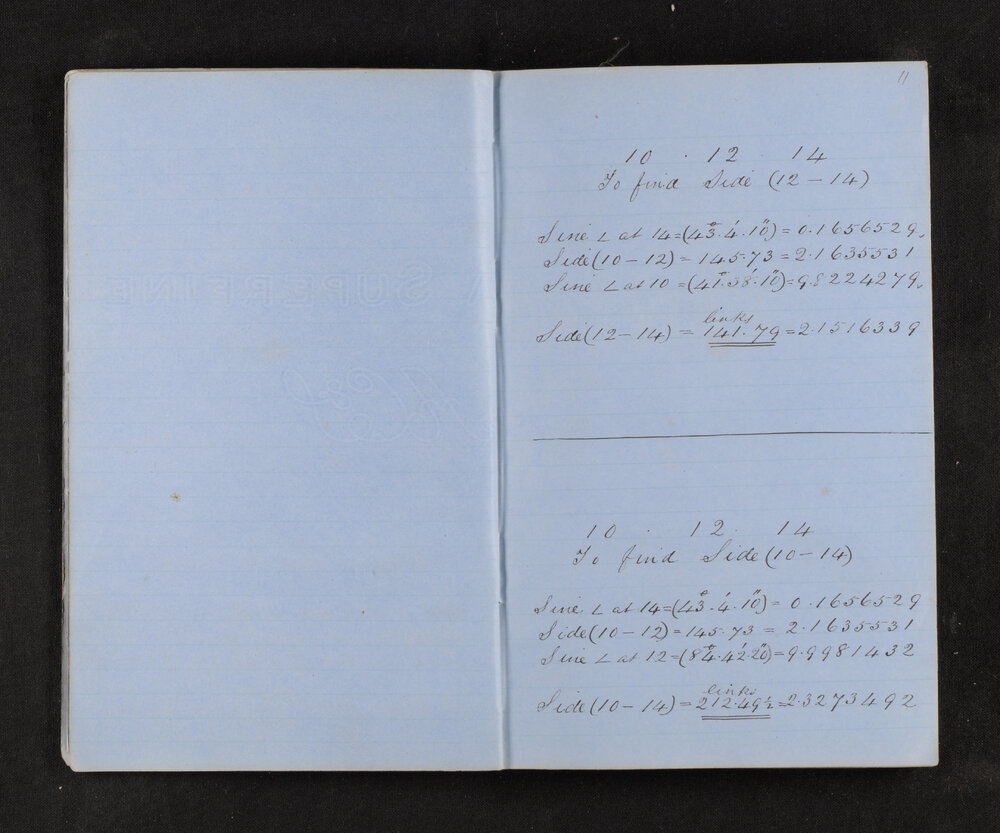 11
10 · 12 · 14
To find Side (12 – 14)
Sine ∠ at 14 = (43°. 4'. 10") = 0.1656529
Side (10 – 12) = 145.73 = 2.1635531
Sine ∠ at 10 = (41°. 38'. 10") = 9.8224279
links
Side (12 – 14) = 141.79 = 2.1516339
10 · 12 · 14
To find Side (10 – 14)
Sine ∠ at 14 = (43°. 4'. 10") = 0.1656529
Side (10 – 12) = 145.73 = 2.1635531
Sine ∠ at 12 = (84°. 42'. 20") = 9.9981432
links
Side (10 – 14) = 212.49½ = 2.3273492